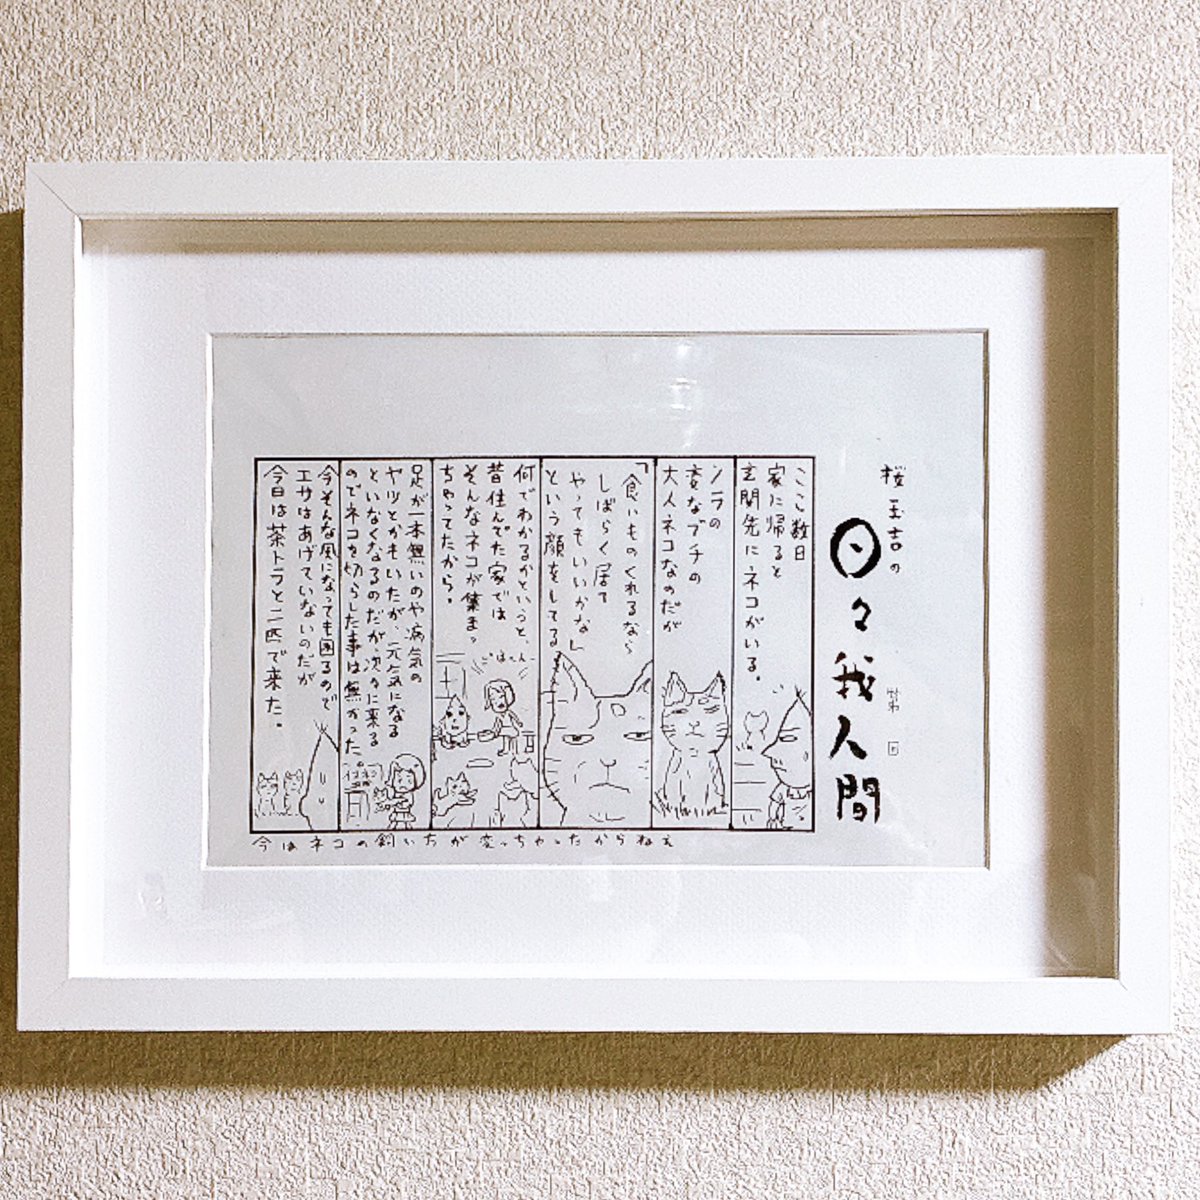 桜玉吉の
日々我人間
第 回
ここ数日
家に帰ると
玄関先にネコがいる。
ノラの
変なブチの
大人ネコなのだが
「食いものくれるなら
しばらく居て
やってもいいかな」
という顔をしてる
何でわかるかというと、
昔住んでた家では
そんなネコが集まっ
ちゃってたから。
ごはーん
足が一本無いのや病気の
ヤツとかもいたが、元気になる
といなくなるのだが、次々に来る
のでネコを切らした事は無かった。
今そんな風になっても困るので
エサはあげていないのだが
今日は茶トラと二匹で来た。
今はネコの飼い方が変っちゃったからねえ